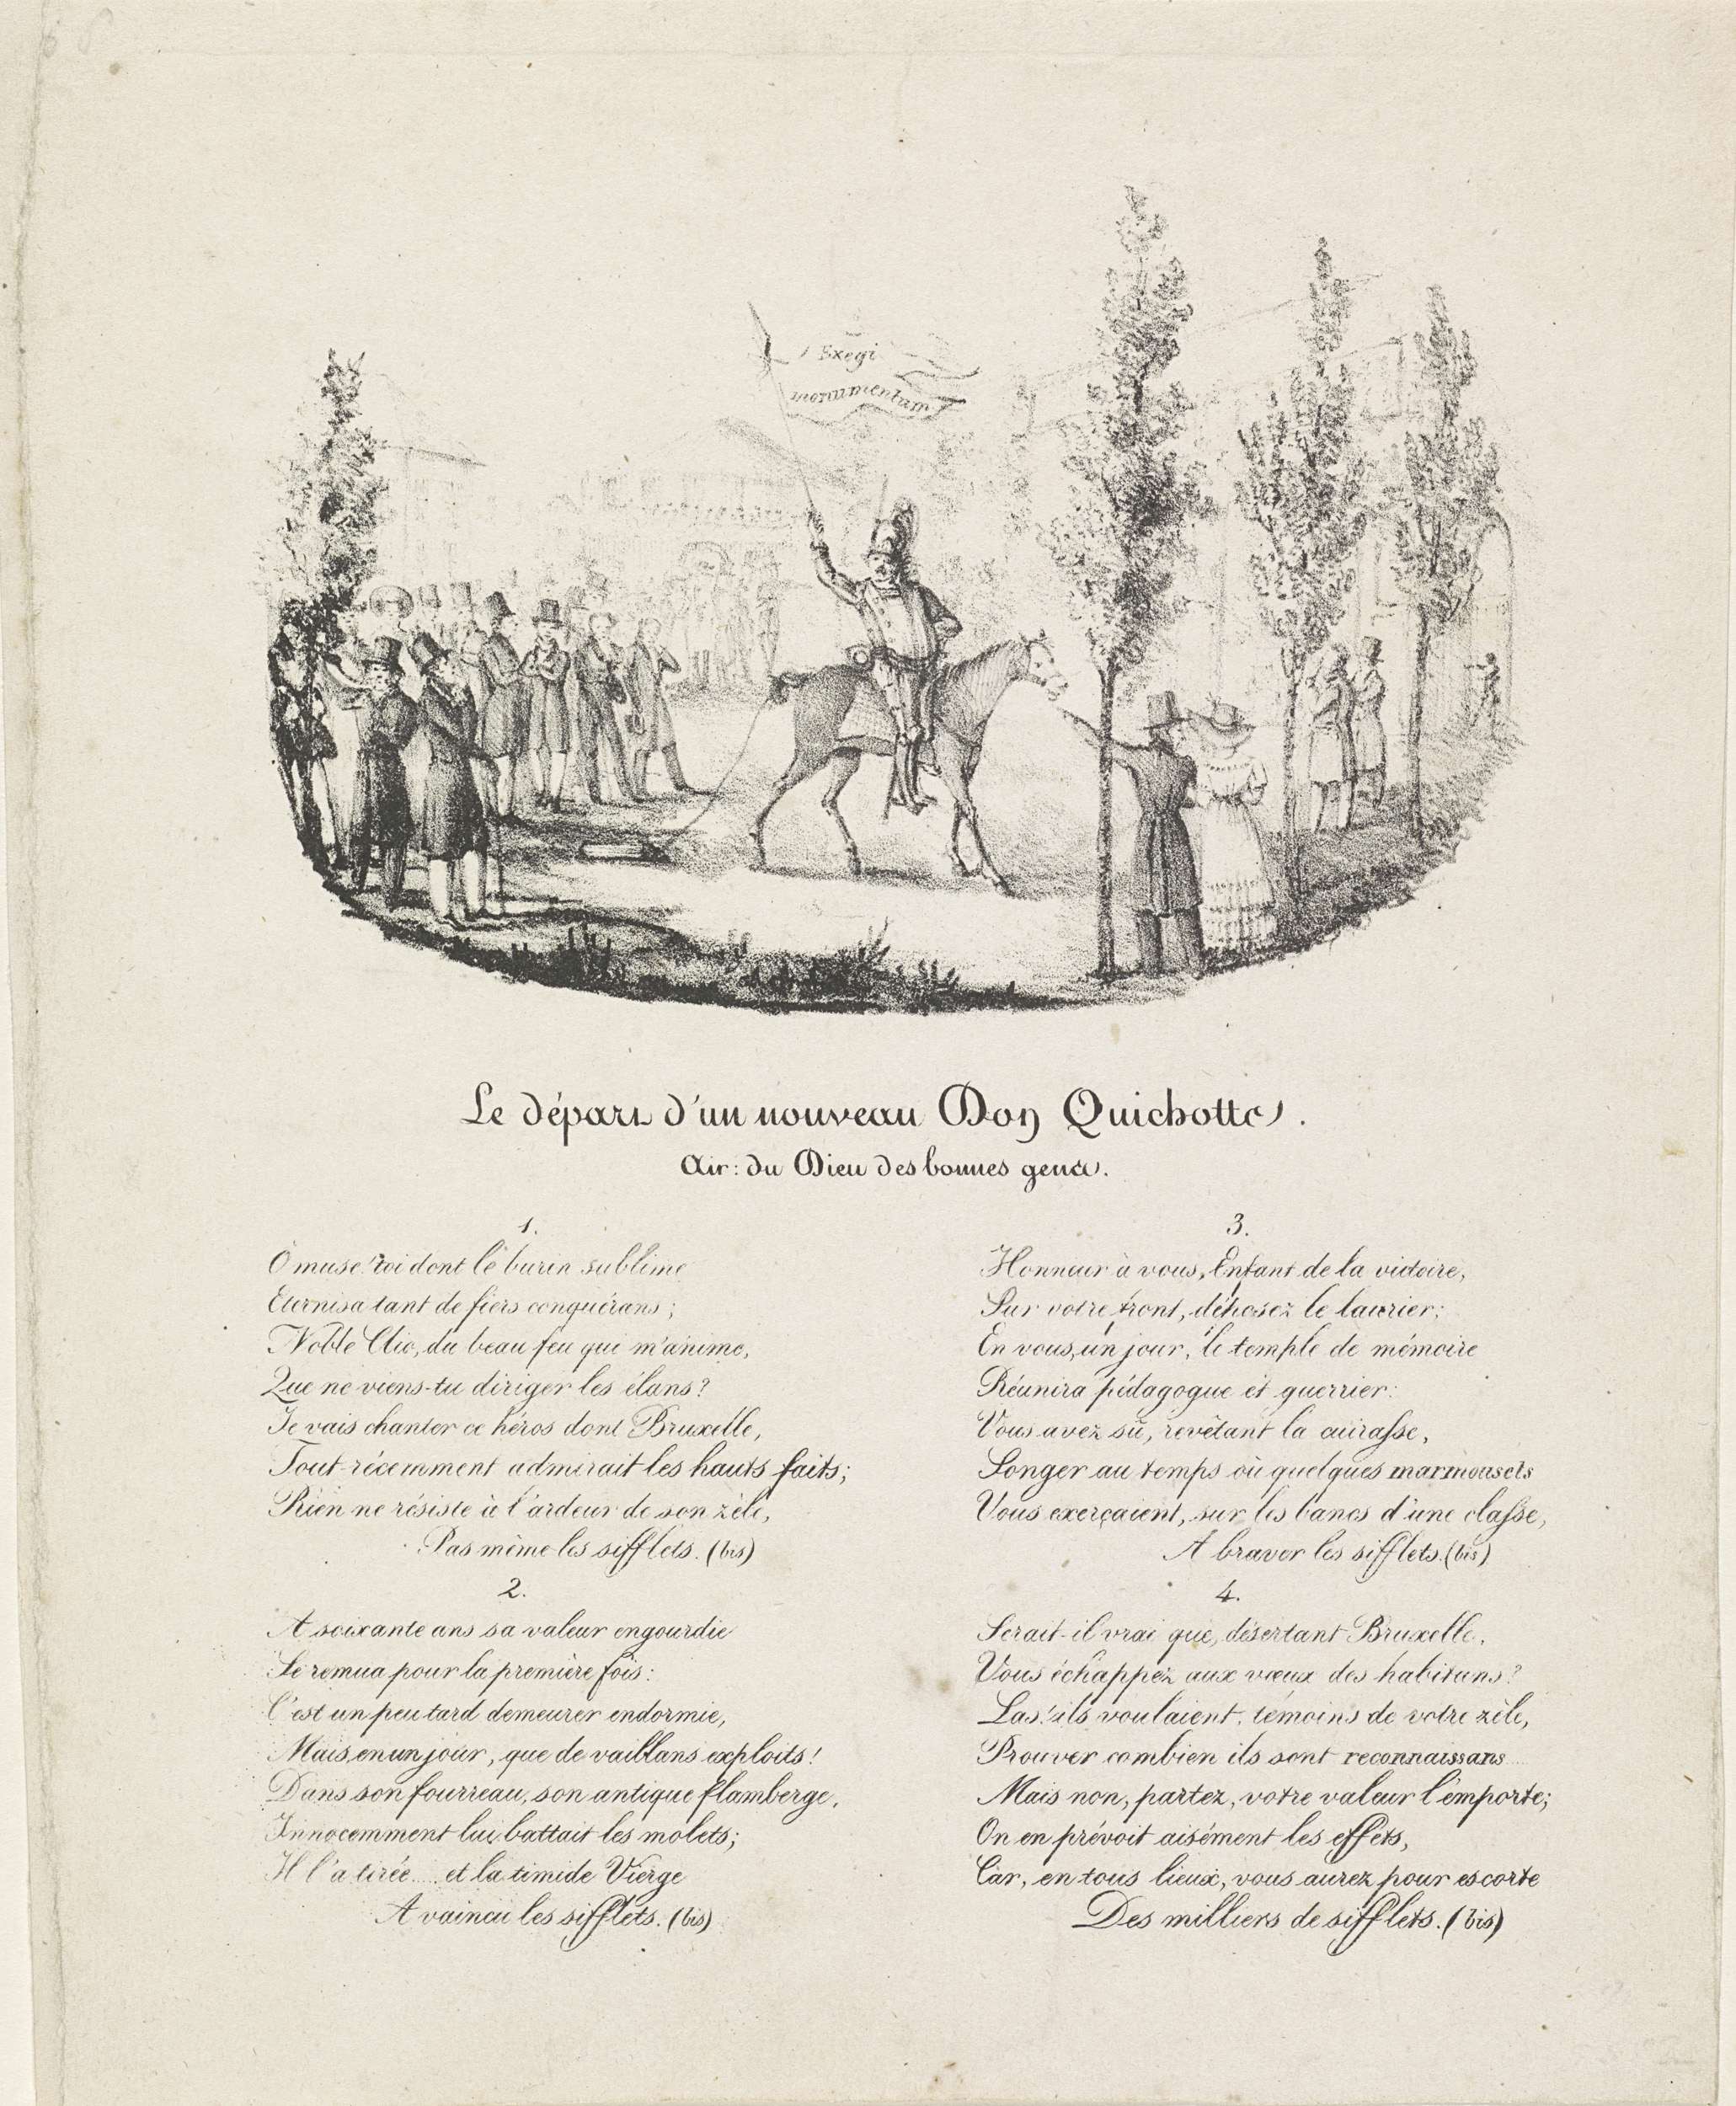 Exegi
monumentum
Le départ d'un nouveau Don Quichotte.
Air: du Dieu des bonnes gens.
1.
O muse! toi dont le burin sublime
Eternisa tant de fiers conquérans;
Noble Clio, du beau feu qui m'anime,
Que ne viens-tu diriger les élans?
Je vais chanter ce héros dont Bruxelle,
Tout récemment admirait les hauts faits;
Rien ne résiste à l'ardeur de son zèle,
Pas même les sifflets. (bis)
2.
A soixante ans sa valeur engourdie
Se remua pour la première fois:
C'est un peu tard demeurer endormie,
Mais, en un jour, que de vaillans exploits!
Dans son fourreau, son antique flamberge,
Innocemment lui battait les molets;
Il l'a tirée.... et la timide Vierge
A vaincu les sifflets. (bis)
3.
Honneur à vous, Enfant de la victoire,
Sur votre front, déposez le laurier;
En vous, un jour, le temple de mémoire
Réunira pédagogue et guerrier:
Vous avez sû, revêtant la cuirasse,
Songer au temps où quelques marmousets
Vous exerçaient, sur les bancs d'une classe,
A braver les sifflets. (bis)
4.
Serait-il vrai que, désertant Bruxelle,
Vous échappez aux vœux des habitans?
Las! ils voulaient, témoins de votre zèle,
Prouver combien ils sont reconnaissans
Mais non, partez, votre valeur l'emporte;
On en prévoit aisément les effets,
Car, en tous lieux, vous aurez pour escorte
Des milliers de sifflets. (bis)